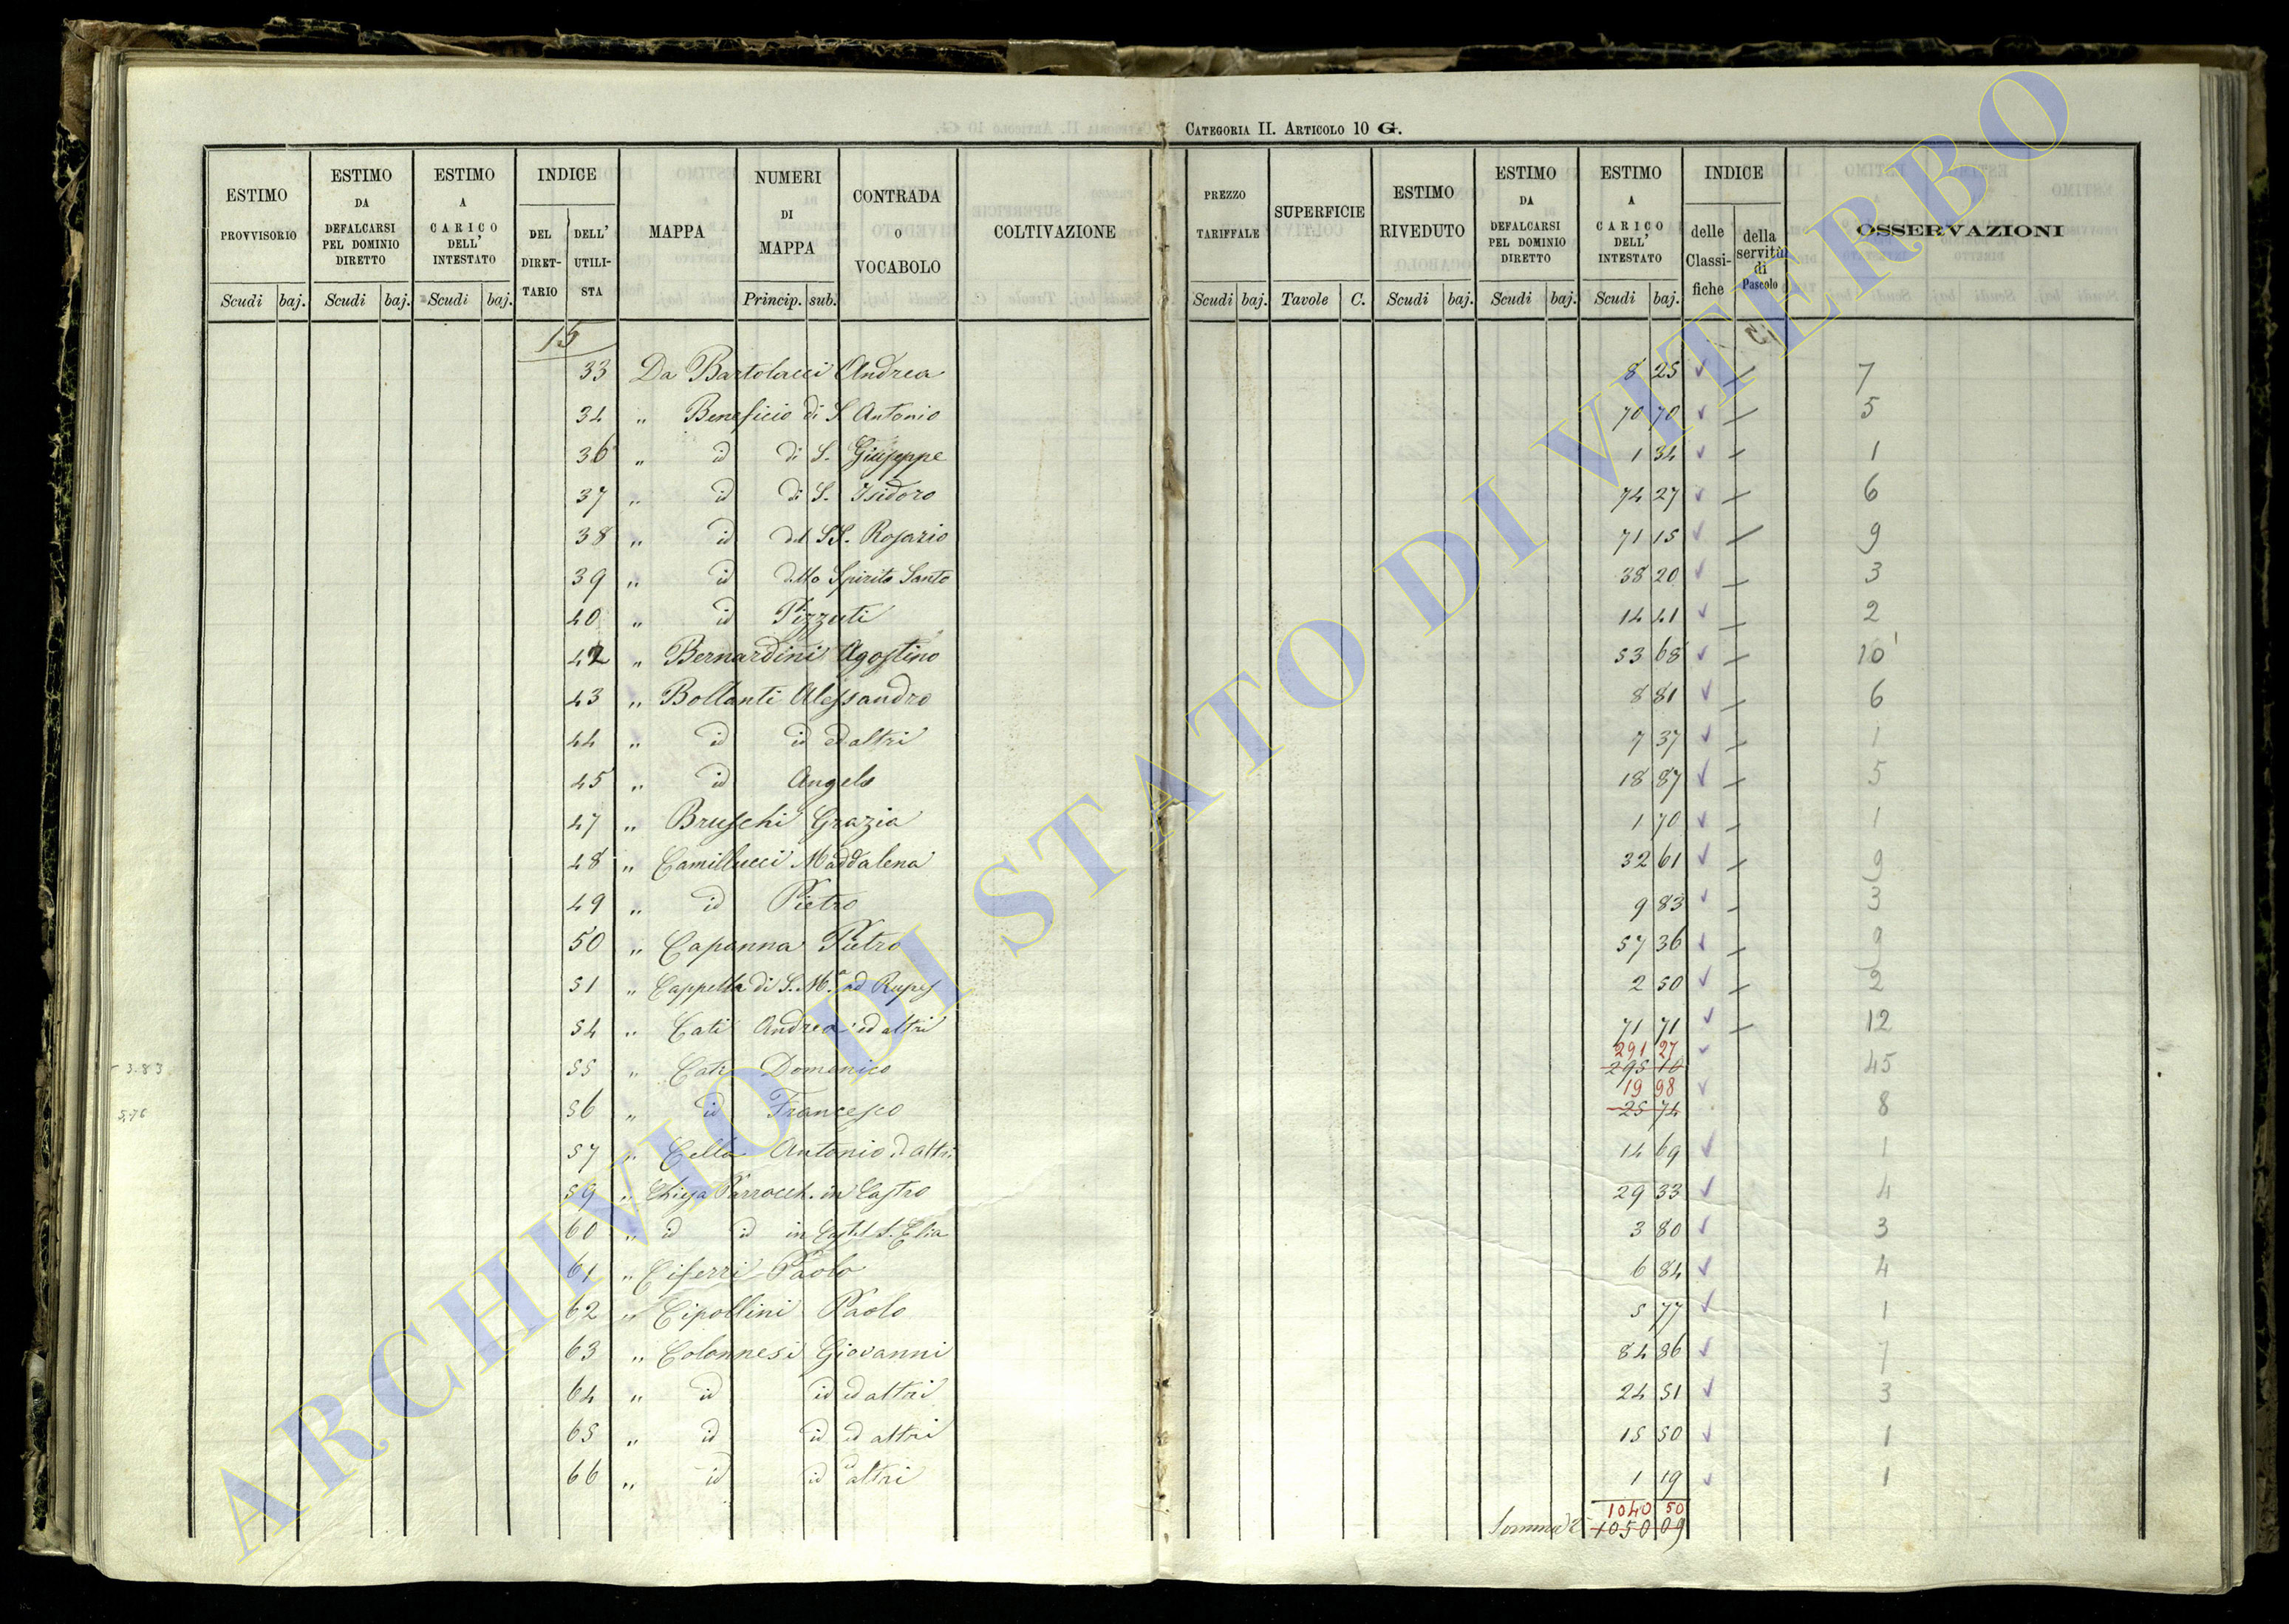 CATEGORIA II. ARTICOLO 10 G.
ESTIMO PROVVISORIO
ESTIMO DA DEFALCARSI PEL DOMINIO DIRETTO
ESTIMO A CARICO DELL' INTESTATO
INDICE
DEL DIRET-TARIO
DELL' UTILI-STA
MAPPA
NUMERI DI MAPPA
CONTRADA O VOCABOLO
COLTIVAZIONE
PREZZO TARIFFALE
SUPERFICIE
ESTIMO RIVEDUTO
ESTIMO DA DEFALCARSI PEL DOMINIO DIRETTO
ESTIMO A CARICO DELL' INTESTATO
INDICE
delle Classi-fiche
della servitù di Pascolo
OSSERVAZIONI
Scudi baj. Scudi baj. Scudi baj. Princip. sub. Scudi baj. Tavole C. Scudi baj. Scudi baj. Scudi baj.
15
33 Da Bartolacci Andrea 8 25 7
34 " Beneficio di S. Antonio 70 70 5
36 " id di S. Giuseppe 1 34 1
37 " id di S. Isidoro 74 27 6
38 " id del SS. Rosario 71 15 9
39 " id dello Spirito Santo 38 20 3
40 " id Pizzuti 14 41 2
42 " Bernardini Agostino 53 68 10
43 " Bollanti Alessandro 8 81 6
44 " id id ed altri 7 37 1
45 " id Angelo 18 87 5
47 " Bruschi Grazia 1 70 1
48 " Camillucci Maddalena 32 61 9
49 " id Pietro 9 83 3
50 " Capanna Pietro 57 36 9
51 " Cappella di S. Mª ad Rupes 2 50 2
54 " Cati Andrea ed altri 71 71 12
291 27
- 3.83 55 " Cati Domenico 295 10 45
19 98
5.76 56 " id Francesco 25 74 8
57 " Cella Antonio ed altri 14 69 1
59 " Chiesa Parrocch. in Castro 29 33 4
60 " id id in Castel S. Elia 3 80 3
61 " Ciferri Paolo 6 84 4
62 " Cipollini Paolo 5 77 1
63 " Colonnesi Giovanni 84 86 7
64 " id id ed altri 24 51 3
65 " id id ed altri 15 50 1
66 " id id ed altri 1 19 1
1040 50
Somma 1050 09
ARCHIVIO DI STATO DI VITERBO